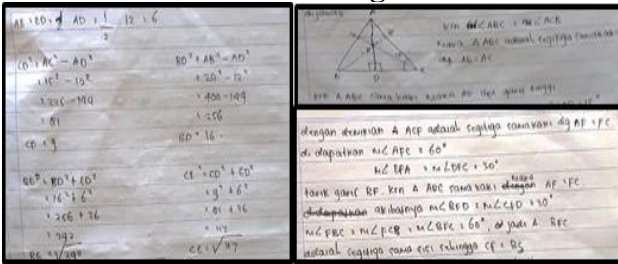 AE = ED = 1/2 AD = 1/2 . 12 = 6
CD² = AC² - AD²
= 15² - 12²
= 225 - 144
= 81
CD = 9
BD² = AB² - AD²
= 20² - 12²
= 400 - 144
= 256
BD = 16
BE² = BD² + ED²
= 16² + 6²
= 256 + 36
= 292
BE = √292
CE² = CD² + ED²
= 9² + 6²
= 81 + 36
CE = √117
Krn m∠ABC = m∠ACB
maka Δ ABC adalah segitiga samakaki
dg AB = AC
krn Δ ABC sama kaki maka AD garis tinggi
dengan demikian Δ ACF adalah segitiga samakaki dg AF = FC
di dapatkan m∠ AFC = 60°
m∠ = m∠ DFC = 30°
tarik garis BF. krn Δ ABC sama kaki maka AF = FC
akibatnya m∠BFD = m∠CFD = 30°
m∠ FBC = m∠ FCB = m∠ BFC = 60°, jadi Δ BFC
adalah segitiga sama sisi sehingga CF = BF